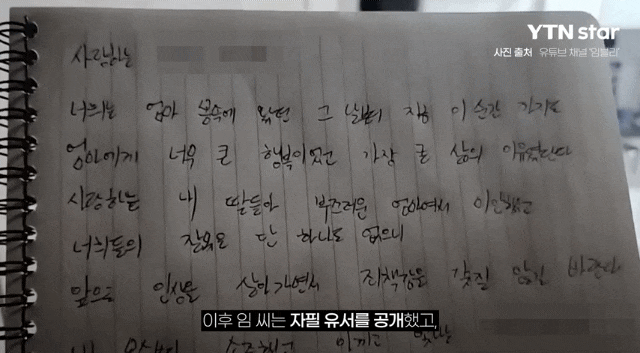 YTN star
사진 출처 유튜브 채널 '임블리'
사랑하는
너희는 엄마 뱃속에 왔던 그 날부터 지금 이 순간 까지도
엄마에게 너무 큰 행복이었고 가장 큰 삶의 이유였단다
사랑하는 내 딸들아 부끄러운 엄마여서 미안했고
너희들의 잘못은 단 하나도 없으니
앞으로 인생을 살아가면서 죄책감을 갖질 않길 바란다
이후 임 씨는 자필 유서를 공개했고,